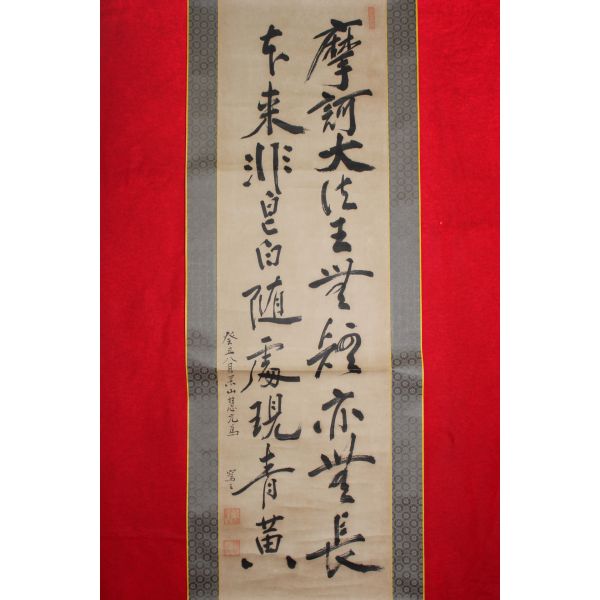 摩訶大法王無短亦無長
本来非皂白随處現青黄
癸丑八月